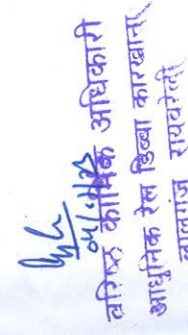 04/11/25
वरिष्ठ कार्मिक अधिकारी
आधुनिक रेल डिब्बा कारखाना
लालगंज रायबरेली